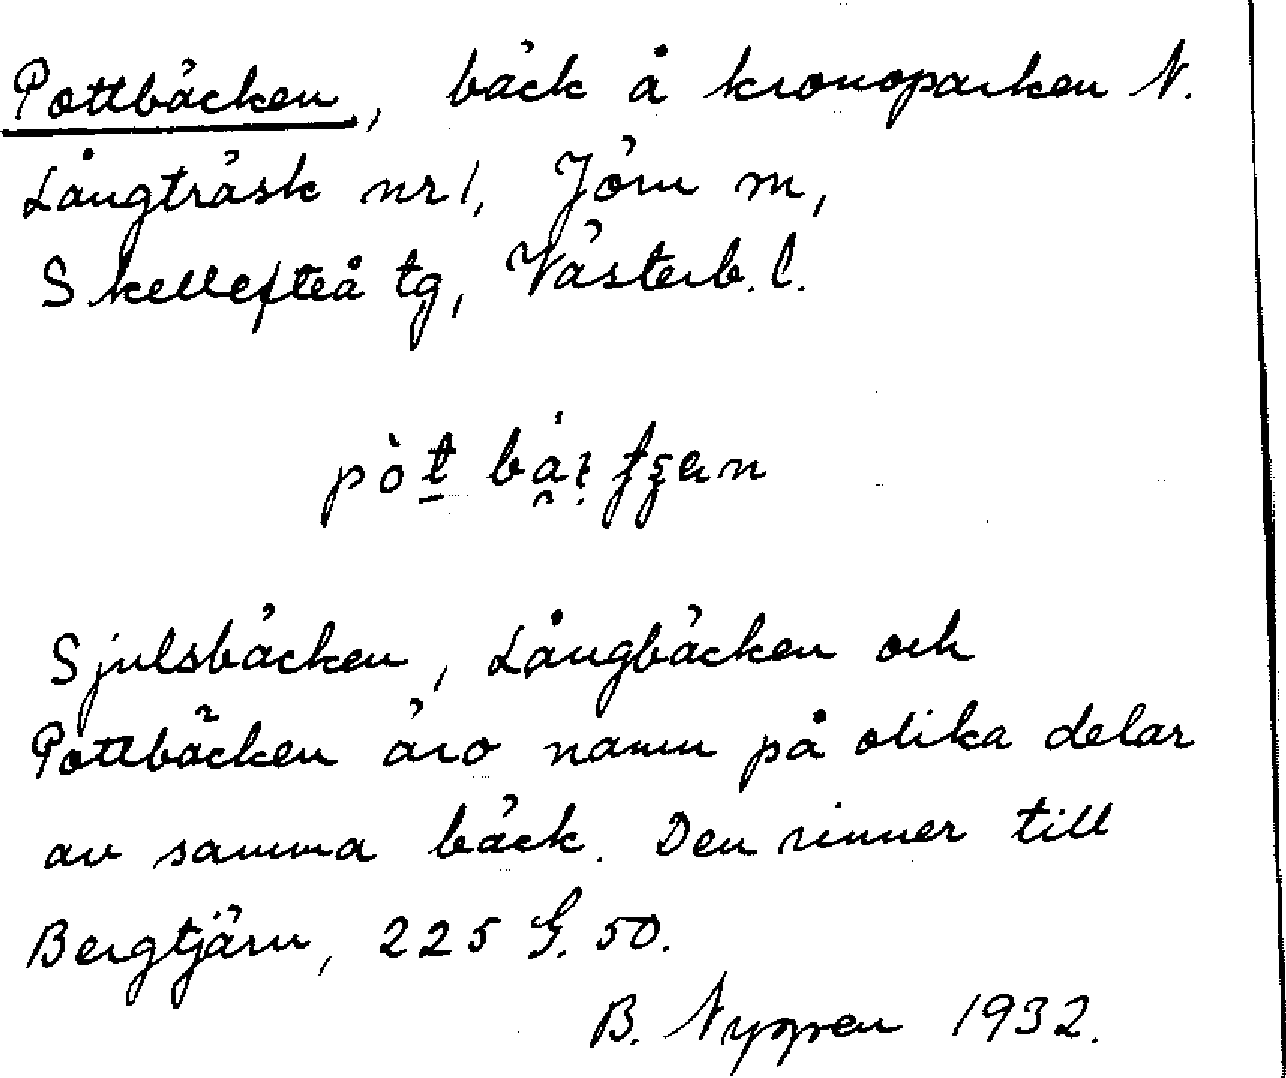 Pottbäcken, bäck å kronoparken N.
Långträsk nr 1, Jörn m,
Skellefteå tg, Västerb. l.
Sjulsbäcken, Långbäcken och
Pottbäcken äro namn på olika delar
av samma bäck. Den rinner till
Bergtjärn, 225 G. 50.
B. Nygren 1932.